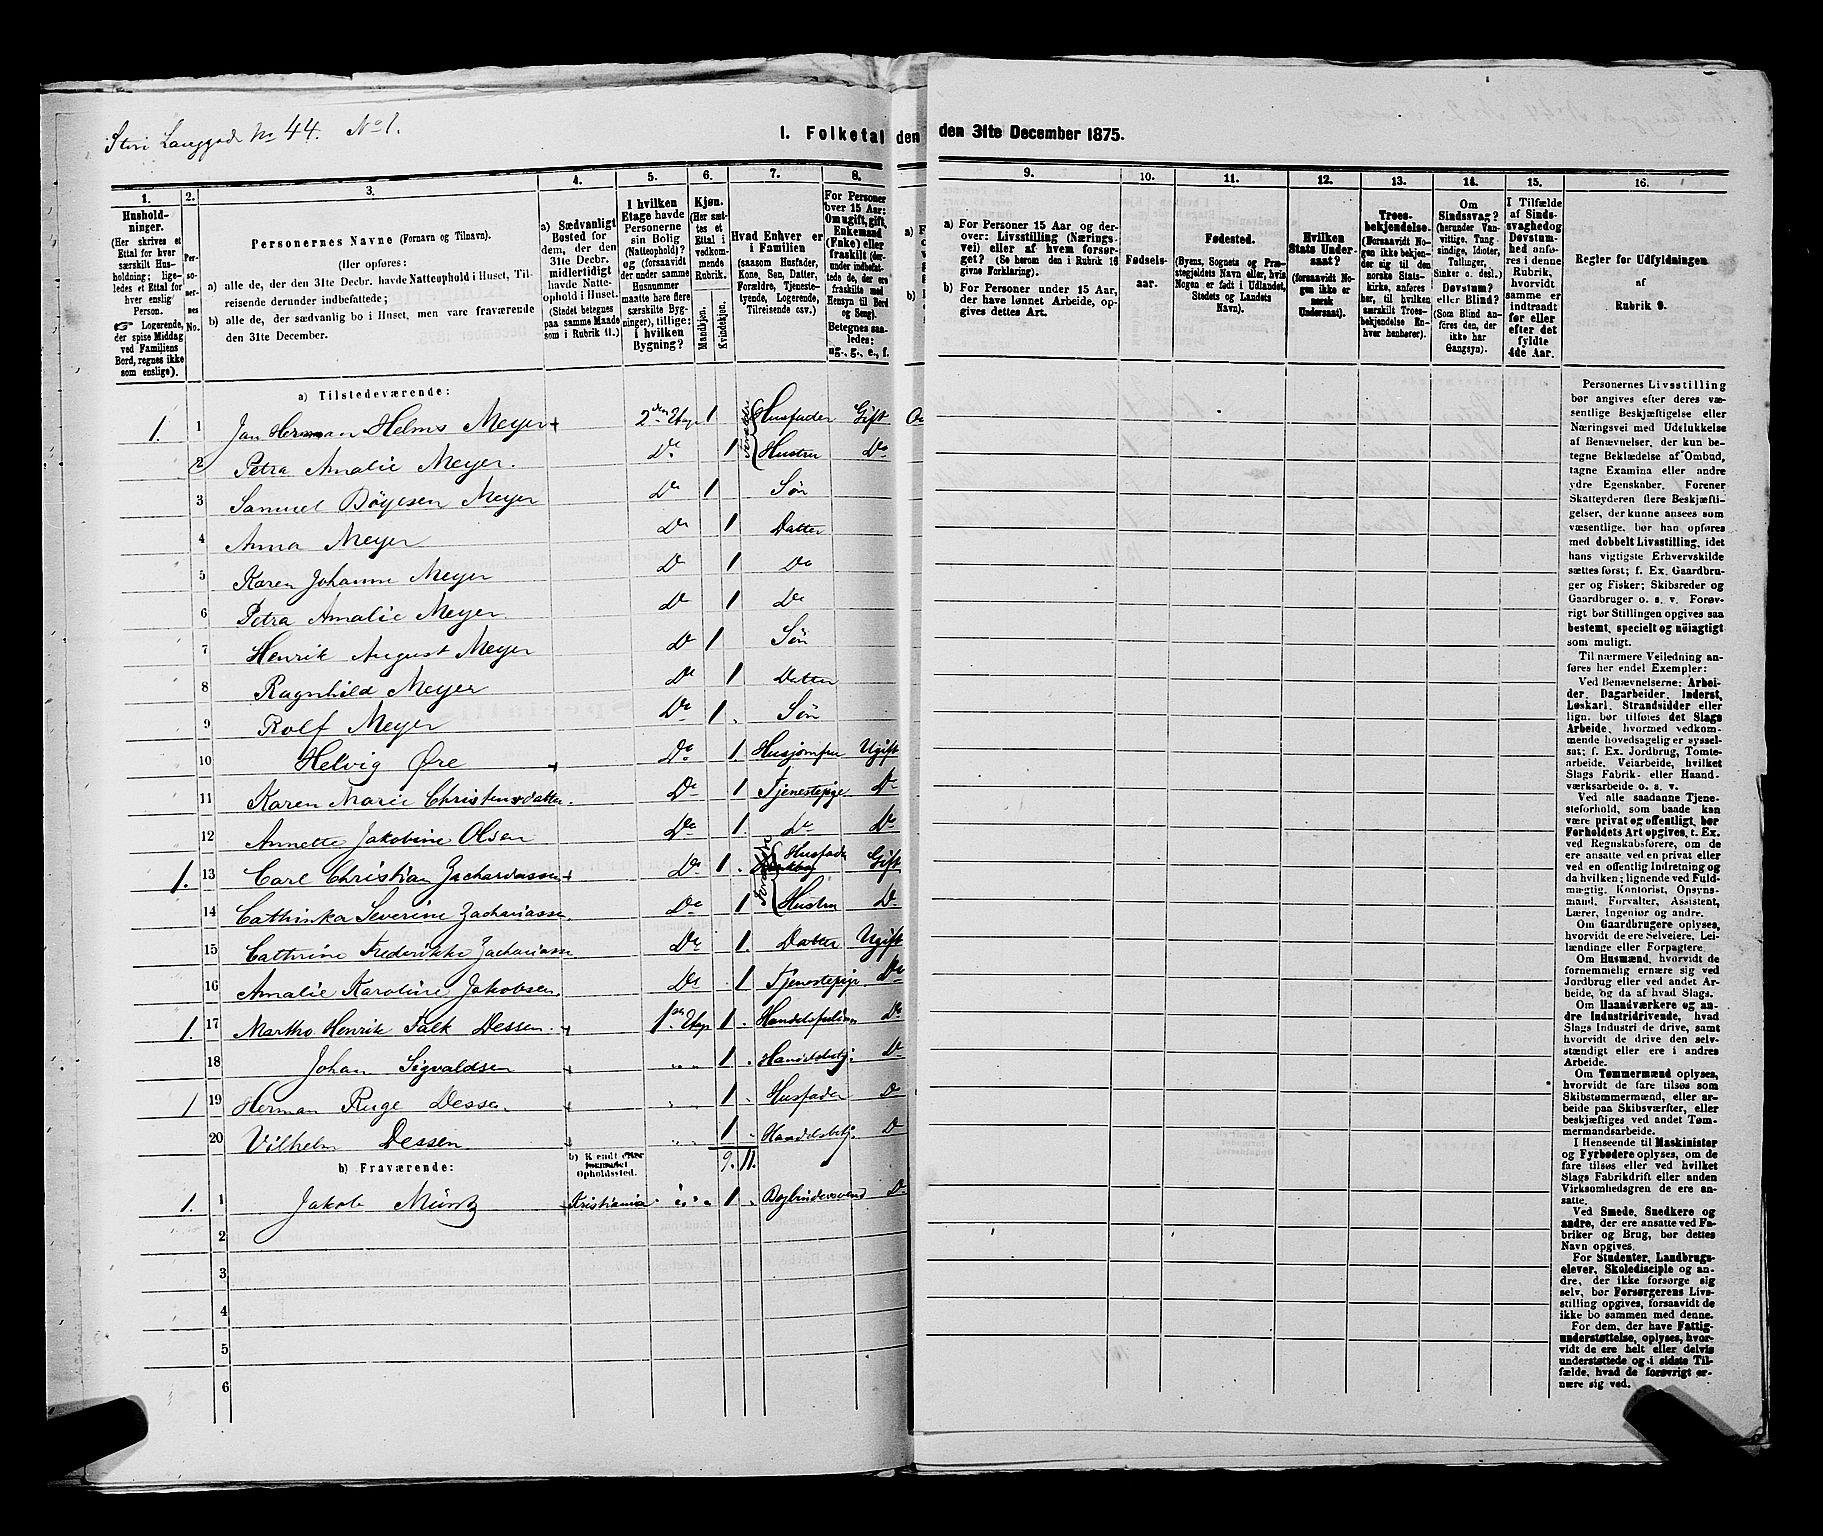 Stori Langgade No 44. No 1.
I. Folketal den
den 31te December 1875.
1.
Husholdninger.
(Her skrives et Ettal for hver særskilt Husholdning; ligeledes et Ettal for hver enslig Person.
☞ Logerende, der spise Middag ved Familiens Bord, regnes ikke som enslige).
2.
Personernes No.
3.
Personernes Navne (Fornavn og Tilnavn).
(Her opføres:
a) alle de, der den 31te Decbr. havde Natteophold i Huset, Tilreisende derunder indbefattede;
b) alle de, der sædvanlig bo i Huset, men vare fraværende den 31te December.
4.
a) Sædvanligt Bosted for dem, der den 31te Decbr. midlertidigt havde Natteophold i Huset. (Stedet betegnes paa samme Maade som i Rubrik 11.)
5.
I hvilken Etage havde Personerne sin Bolig (Natteophold)? og (forsaavidt der under samme Husnummer maatte høre flere særskilte Bygninger), tillige: i hvilken Bygning?
6.
Kjøn.
(Her sættes et Ettal i vedkommende Rubrik.
Mandkjøn.
Kvindekjøn.
7.
Hvad Enhver er i Familien
(saasom Husfader, Kone, Søn, Datter, Forældre, Tjenestetyende, Logerende, Tilreisende osv.)
8.
For Personer over 15 Aar: Om ugift, gift, Enkemand (Enke) eller fraskilt (derunder indbefattede de, der ere fraskilte med Hensyn til Bord og Seng).
Betegnes saaledes: ug., g., e., f.
9.
a) For Personer 15 Aar og derover: Livsstilling (Næringsvei) eller af hvem forsørget? (Se herom den i Rubrik 16 givne Forklaring).
b) For Personer under 15 Aar, der have lønnet Arbeide, opgives dettes Art.
10.
Fødselsaar.
11.
Fødested.
(Byens, Sognets og Præstegjeldets Navn eller, hvis Nogen er født i Udlandet, Stedets og Landets Navn).
12.
Hvilken Stats Undersaat?
(forsaavidt Nogen ikke er norsk Undersaat).
13.
Troesbekjendelse.
(Forsaavidt Nogen ikke bekjender sig til den norske Statskirke, anføres her, til hvilket Troesbekjendelse Enhver henhører).
14.
Om Sindssvag? (herunder Vanvittige, Tungsindige, Idioter, Tullinger, Sinker o. desl.) Døvstum? eller Blind? (Som Blind anføres den, der ikke har Gangsyn).
15.
I Tilfælde af Sindssvaghed og Døvstumhed anføres i denne Rubrik, hvorvidt samme er indtraadt før eller efter det fyldte 4de Aar.
16.
Regler for Udfyldningen
af
Rubrik 9.
a) Tilstedeværende:
1. 1 Jan Herman Helms Meyer 2den Etage 1 Husfader Gift
2 Petra Amalie Meyer. Do 1 Hustru Do
3 Samuel Bøyesen Meyer Do 1 Søn
4 Anna Meyer Do 1 Datter
5 Karen Johanne Meyer Do 1 Do
6 Petra Amalie Meyer. Do 1 Do
7 Henrik August Meyer Do 1 Søn
8 Ragnhild Meyer Do 1 Datter
9 Rolf Meyer Do 1 Søn
10 Helvig Øre Do 1 Husjomfru Ugift
11 Karen Marie Christensdatter. Do 1 Tjenestepige Do
12 Annette Jakobine Olsen Do 1 Do Do
1. 13 Carl Christian Zachariassen Do 1 Husfader Gift
14 Cathinka Severine Zachariassen Do 1 Hustru Do
15 Cathrine Frederikke Zachariassen Do 1 Datter Ugift
16 Amalie Karoline Jakobsen Do 1 Tjenestepige Do
1. 17 Martho Henrik Falk Dessen 1ste Etage 1 Do
18 Johan Sigvaldsen „ „ 1 Handelsbetj. Do
1 19 Herman Ruge Dessen „ „ 1 Husfader Do
20 Vilhelm Dessen „ „ 1 Handelsbetj. Do
9. 11.
b) Fraværende:
b) Kjendt eller formodet Opholdssted.
1. 1 Jakob Müntz Kristiania „ „ 1 Bogbindersvend Do
2
3
4
5
6
Personernes Livsstilling bør angives efter deres væsentlige Beskjæftigelse eller Næringsvei med Udelukkelse af Benævnelser, der kun betegne Beklædelse af Ombud, tagne Examina eller andre ydre Egenskaber. Forener Skatteyderen flere Beskjæftigelser, der kunne ansees som væsentlige, bør han opføres med dobbelt Livsstilling, idet hans vigtigste Erhvervskilde sættes først; f. Ex. Gaardbruger og Fisker; Skibsreder og Gaardbruger o. s. v. Forøvrigt bør Stillingen opgives saa bestemt, specielt og nöiagtigt som muligt.
Til nærmere Veiledning anføres her endel Exempler:
Ved Benævnelserne: Arbeider, Dagarbeider, Inderst, Løskarl, Strandsidder eller lign. bør tilføies det Slags Arbeide, hvormed vedkommende hovedsagelig er sysselsat; f. Ex. Jordbrug, Tomtearbeide, Veiarbeide, hvilket Slags Fabrik- eller Haandværksarbeide o. s. v.
Ved alle saadanne Tjenesteforhold, som baade kan være privat og offentligt, bør Forholdets Art opgives, t. Ex. ved Regnskabsførere, om de ere ansatte ved en privat eller ved en offentlig Indretning og da hvilken; lignende ved Fuldmægtig, Kontorist, Opsynsmand, Forvalter, Assistent, Lærer, Ingeniør og andre.
Om Gaardbrugere oplyses, hvorvidt de ere Selveiere, Leilændinge eller Forpagtere.
Om Husmænd, hvorvidt de fornemmelig ernære sig ved Jordbrug eller ved andet Arbeide, og da af hvad Slags.
Om Haandværkere og andre Industridrivende, hvad Slags Industri de drive, samt hvorvidt de drive den selvstændigt eller ere i andres Arbeide.
Om Tømmermænd oplyses, hvorvidt de fare tilsøs som Skibstømmermænd, eller arbeide paa Skibsværfter, eller beskjæftiges ved andet Tømmermandsarbeide.
I Henseende til Maskinister og Fyrbødere oplyses, om de fare tilsøs eller ved hvilket Slags Fabrikdrift eller anden Virksomhedsgren de ere ansatte.
Ved Smede, Snedkere og andre, der ere ansatte ved Fabriker og Brug, bør dettes Navn opgives.
For Studenter, Landbrugselever, Skoledisciple og andre, der ikke forsørge sig selv, bør Forsørgerens Livsstilling opgives, forsaavidt de ikke bo sammen med denne.
For dem, der have Fattigunderstøttelse, oplyses, hvorvidt de ere helt eller delvis understøttede og i sidste Tilfælde, hvad de forøvrigt ernære sig ved.